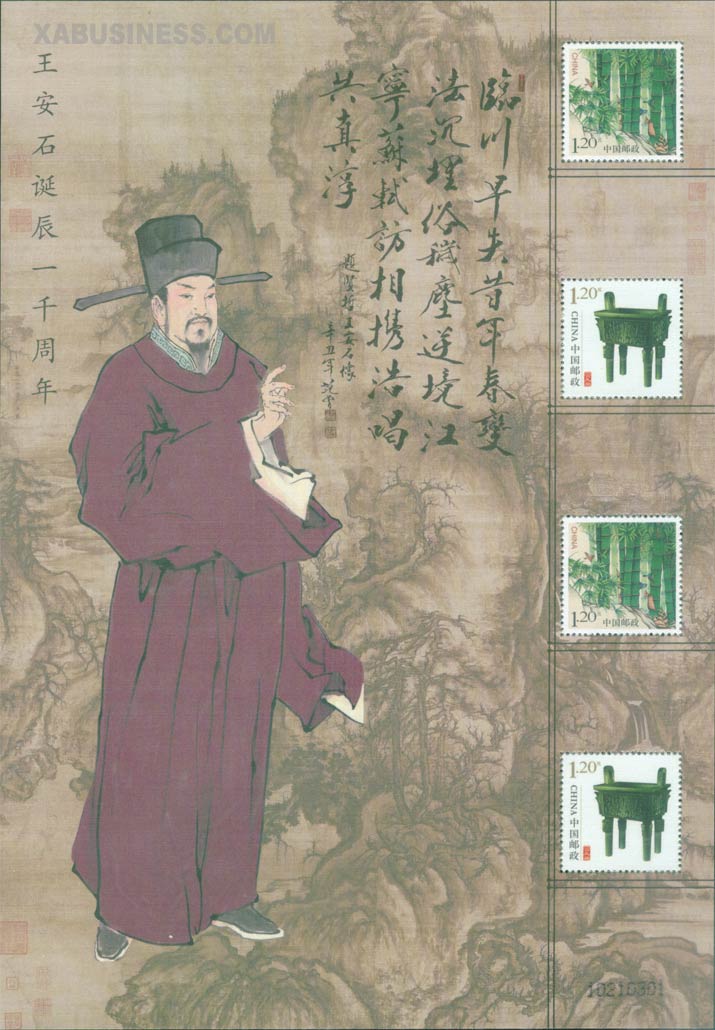 XABUSINESS.COM
王安石诞辰一千周年
臨川早失昔年春變
法沉埋俗穢塵逆境江
寧蘇軾訪相攜浩唱
共真淳
題賢哲王安石像
辛丑年
CHINA
1.20元
中国邮政
1.20元
CHINA 中国邮政
CHINA
1.20元
中国邮政
1.20元
CHINA 中国邮政
10210301